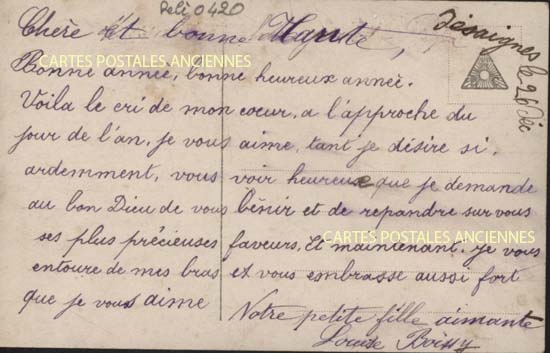 Reli 0420
Désaignes
le 26 Déc
Chère et bonne
Bonne année, bonne heureux année.
CARTES POSTALES ANCIENNES
Voila le cri de mon cœur, a l'approche du
jour de l'an, je vous aime, tant je désire si
ardemment, vous voir heureux que je demande
au bon Dieu de vous bénir et de repandre sur vous
ses plus précieuses faveurs, Et maintenant, je vous
CARTES POSTALES ANCIENNES
entoure de mes bras et vous embrasse aussi fort
que je vous aime
Notre petite fille aimante
Louise Boissy